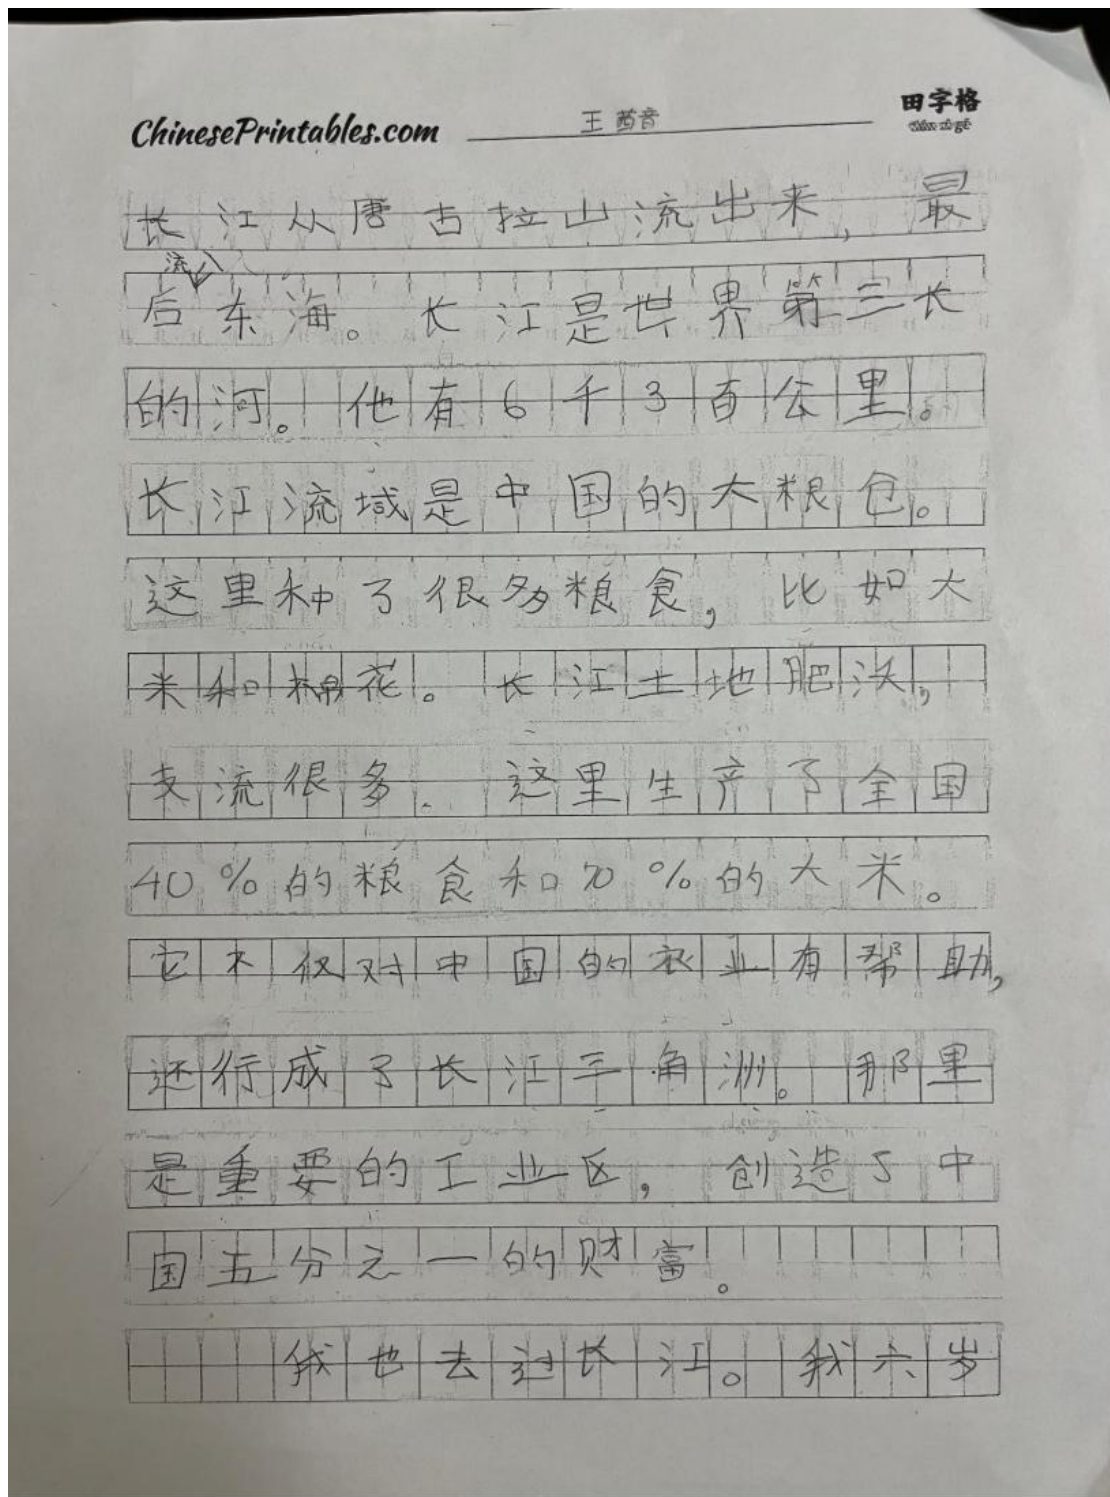 ChinesePrintables.com 王茜音 田字格
tián zì gé
长江从唐古拉山流出来,最
流入
后东海。长江是世界第三长
的河。他有6千3百公里。
长江流域是中国的大粮仓。
这里种了很多粮食,比如大
米和棉花。长江土地肥沃,
支流很多. 这里生产了全国
40%的粮食和70%的大米。
它不仅对中国的农业有帮助,
还行成了长江三角洲。那里
是重要的工业区,创造了中
国五分之一的财富。
我也去过长江。我六岁